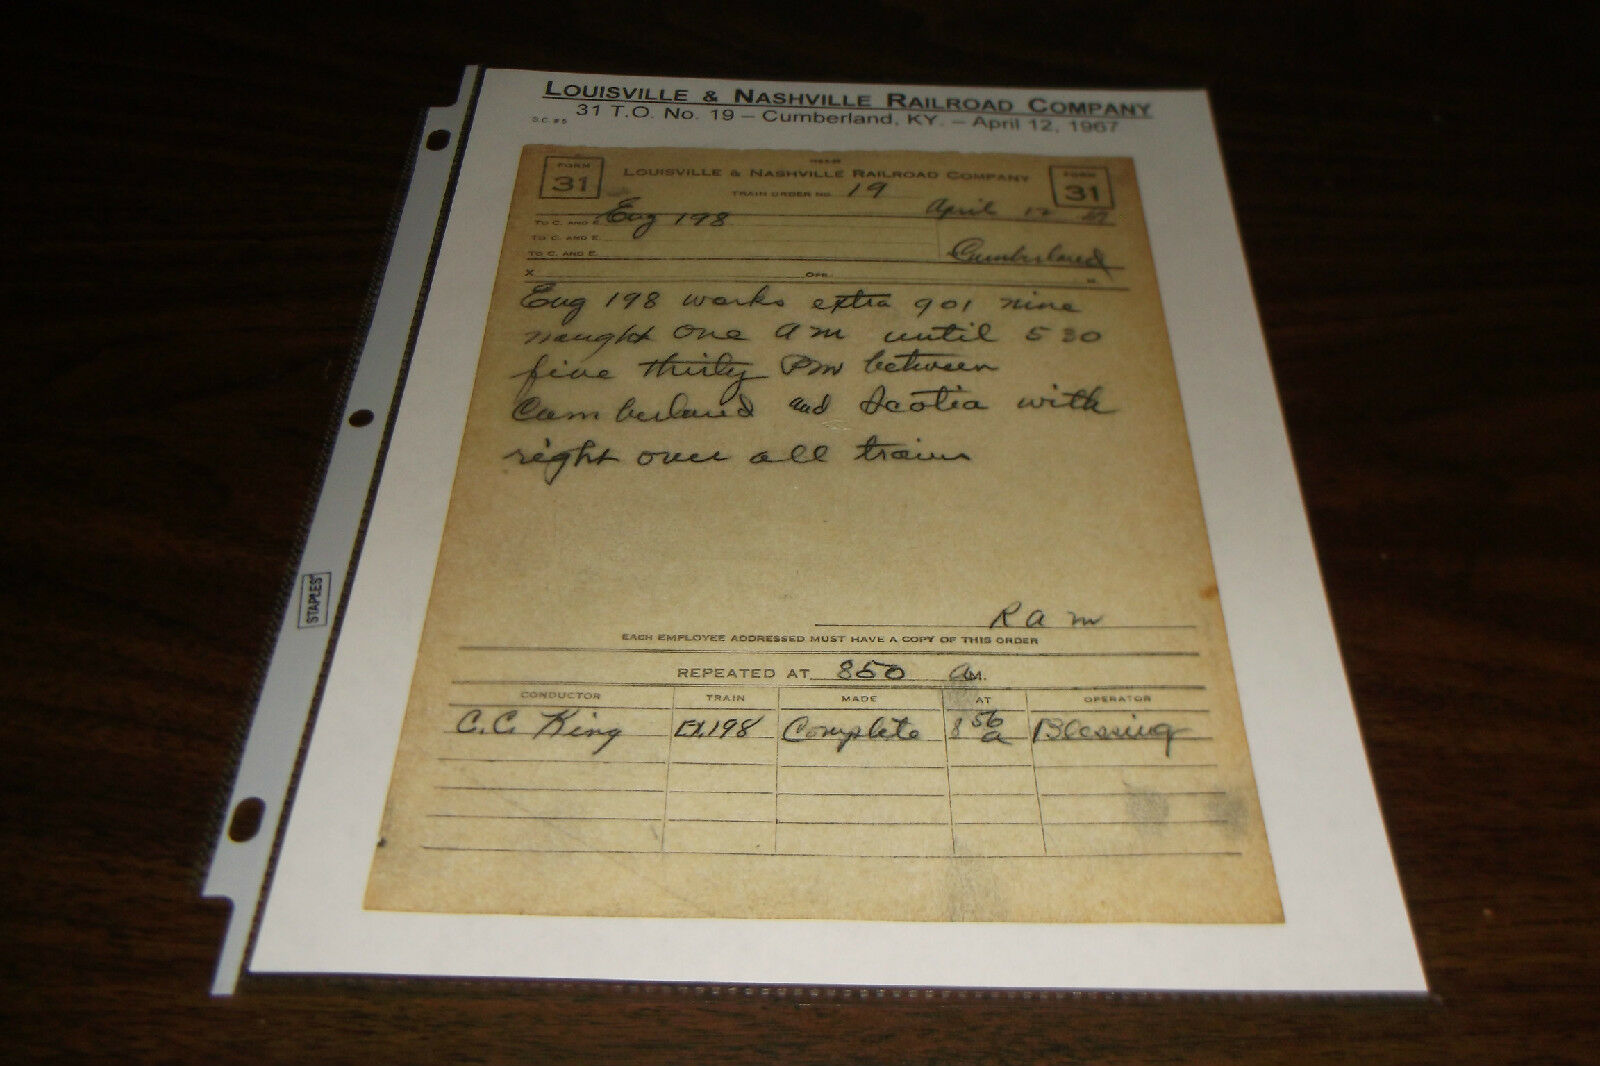 LOUISVILLE & NASHVILLE RAILROAD COMPANY
S.C. #5 31 T.O. No. 19 – Cumberland, KY. – April 12, 1967
FORM 31 LOUISVILLE & NASHVILLE RAILROAD COMPANY FORM 31
TRAIN ORDER NO. 19
April 12 67
TO C. AND E. Eng 198
TO C. AND E.
TO C. AND E. Cumberland
X OPR. M
Eng 198 works extra 901 nine
naught one am until 530
five thirty Pm between
Cumberland and Scotia with
right over all trains
R a m
EACH EMPLOYEE ADDRESSED MUST HAVE A COPY OF THIS ORDER
REPEATED AT 850 a M.
CONDUCTOR TRAIN MADE AT OPERATOR
C.C. King EX.198 Complete 8 56 a Blessing
STAPLES